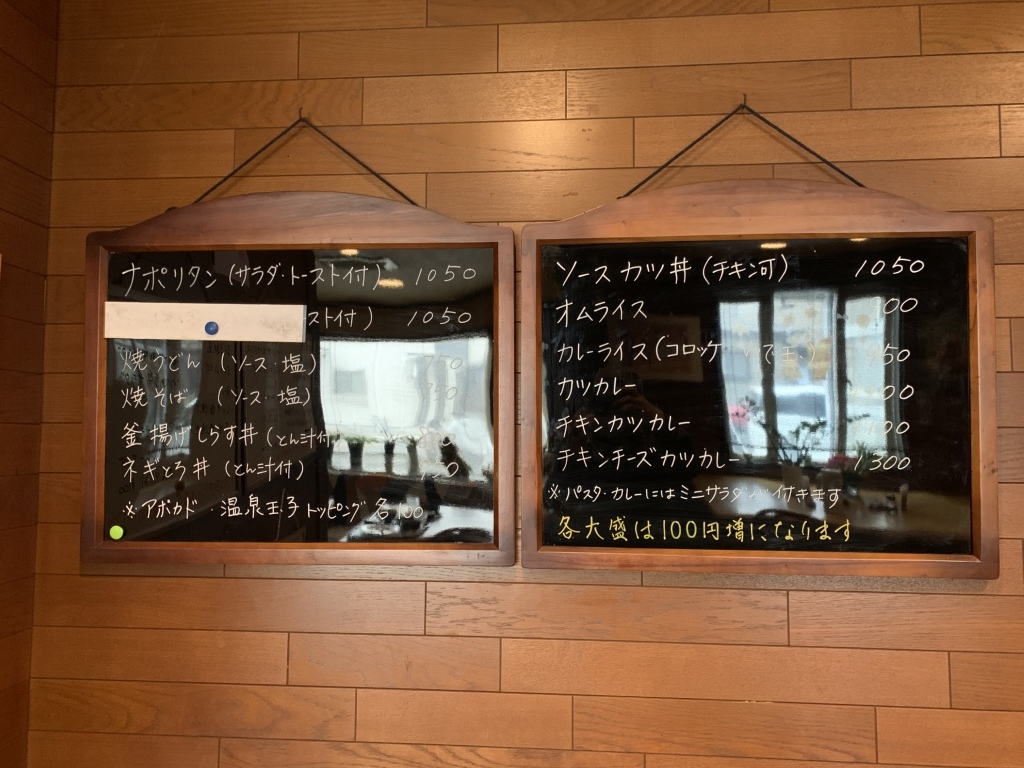 ナポリタン (サラダ・トースト付) 1050
スト付) 1050
焼うどん (ソース・塩) 750
焼そば (ソース・塩) 750
釜揚げしらす丼 (とん汁付)
ネギとろ丼 (とん汁付)
※アボカド・温泉玉子トッピング各100
ソースカツ丼 (チキン可) 1050
オムライス
カレーライス (コロッケ
カツカレー
チキンカツカレー
チキンチーズカツカレー 1300
※パスタ・カレーにはミニサラダが付きます
各大盛は100円増になります